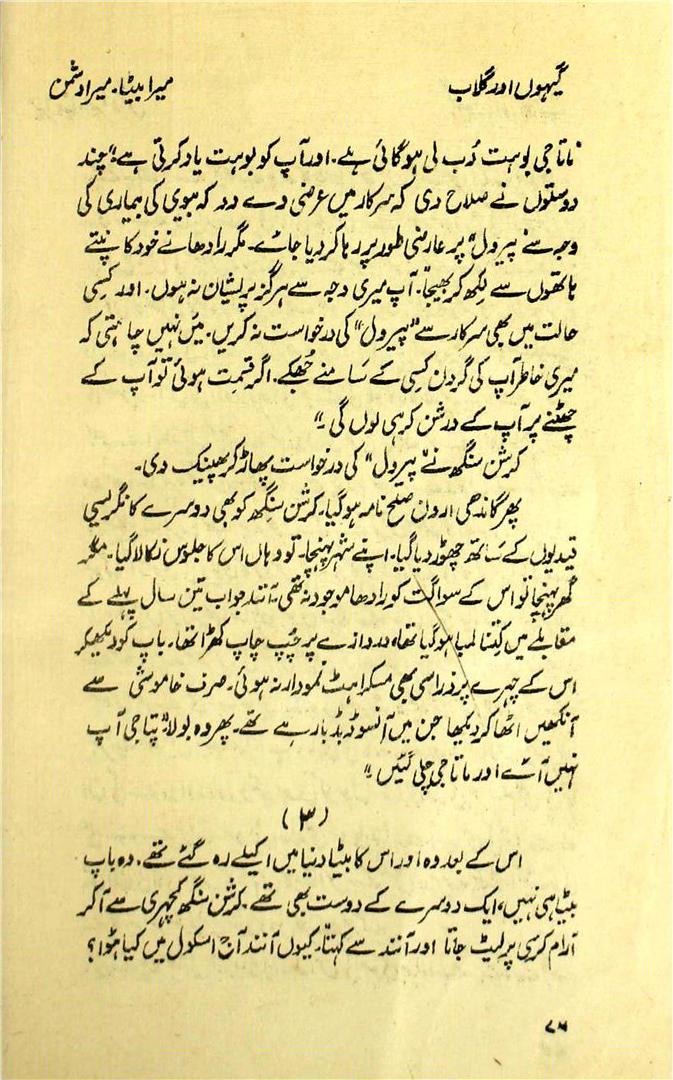 گیہوں اور گلاب
میرا بیٹا۔ میرا دشمن
ماتا جی بوہت دُب لی ہو گائی ہے۔ اور آپ کو بوہت یاد کرتی ہے" چند
دوستوں نے صلاح دی کہ سرکار میں عرضی دے دو کہ بیوی کی بیماری کی
وجہ سے "پیرول" پر عارضی طور پر رہا کر دیا جائے۔ مگر رادھا نے خود کانپتے
ہاتھوں سے لکھ کر بھیجا۔ آپ میری وجہ سے ہرگز پریشان نہ ہوں۔ اور کسی
حالت میں بھی سرکار سے "پیرول" کی درخواست نہ کریں۔ میں نہیں چاہتی کہ
میری خاطر آپ کی گردن کسی کے سامنے جُھکے۔ اگر قسمت ہوئی تو آپ کے
چھٹنے پر آپ کے درشن کر ہی لوں گی۔"
کرشن سنگھ نے "پیرول" کی درخواست پھاڑ کر پھینک دی۔
پھر گاندھی اِرون صلح نامہ ہو گیا۔ کرشن سنگھ کو بھی دوسرے کانگریسی
قیدیوں کے ساتھ چھوڑ دیا گیا۔ اپنے شہر پہنچا۔ تو وہاں اس کا جلوس نکالا گیا۔ مگر
گھر پہنچا تو اس کے سواگت کو رادھا موجود نہ تھی۔ آنند جو اب تین سال پہلے کے
مقابلے میں کِتنا لمبا ہو گیا تھا، دروازے پر چُپ چاپ کھڑا تھا۔ باپ کو دیکھکر
اس کے چہرے پر ذرا سی بھی مسکراہٹ نمودار نہ ہوئی۔ صرف خاموشی سے
آنکھیں اٹھا کر دیکھا جن میں آنسو ڈبڈبا رہے تھے۔ پھر وہ بولا "پتا جی آپ
نہیں آئے اور ماتا جی چلی گئیں۔"
(۳)
اس کے بعد وہ اور اس کا بیٹا دنیا میں اکیلے رہ گئے تھے۔ وہ باپ
بیٹا ہی نہیں، ایک دوسرے کے دوست بھی تھے۔ کرشن سنگھ کچہری سے آ کر
آرام کرسی پر لیٹ جاتا اور آنند سے کہتا۔ کیوں آنند آج اسکول میں کیا ہُوا؟